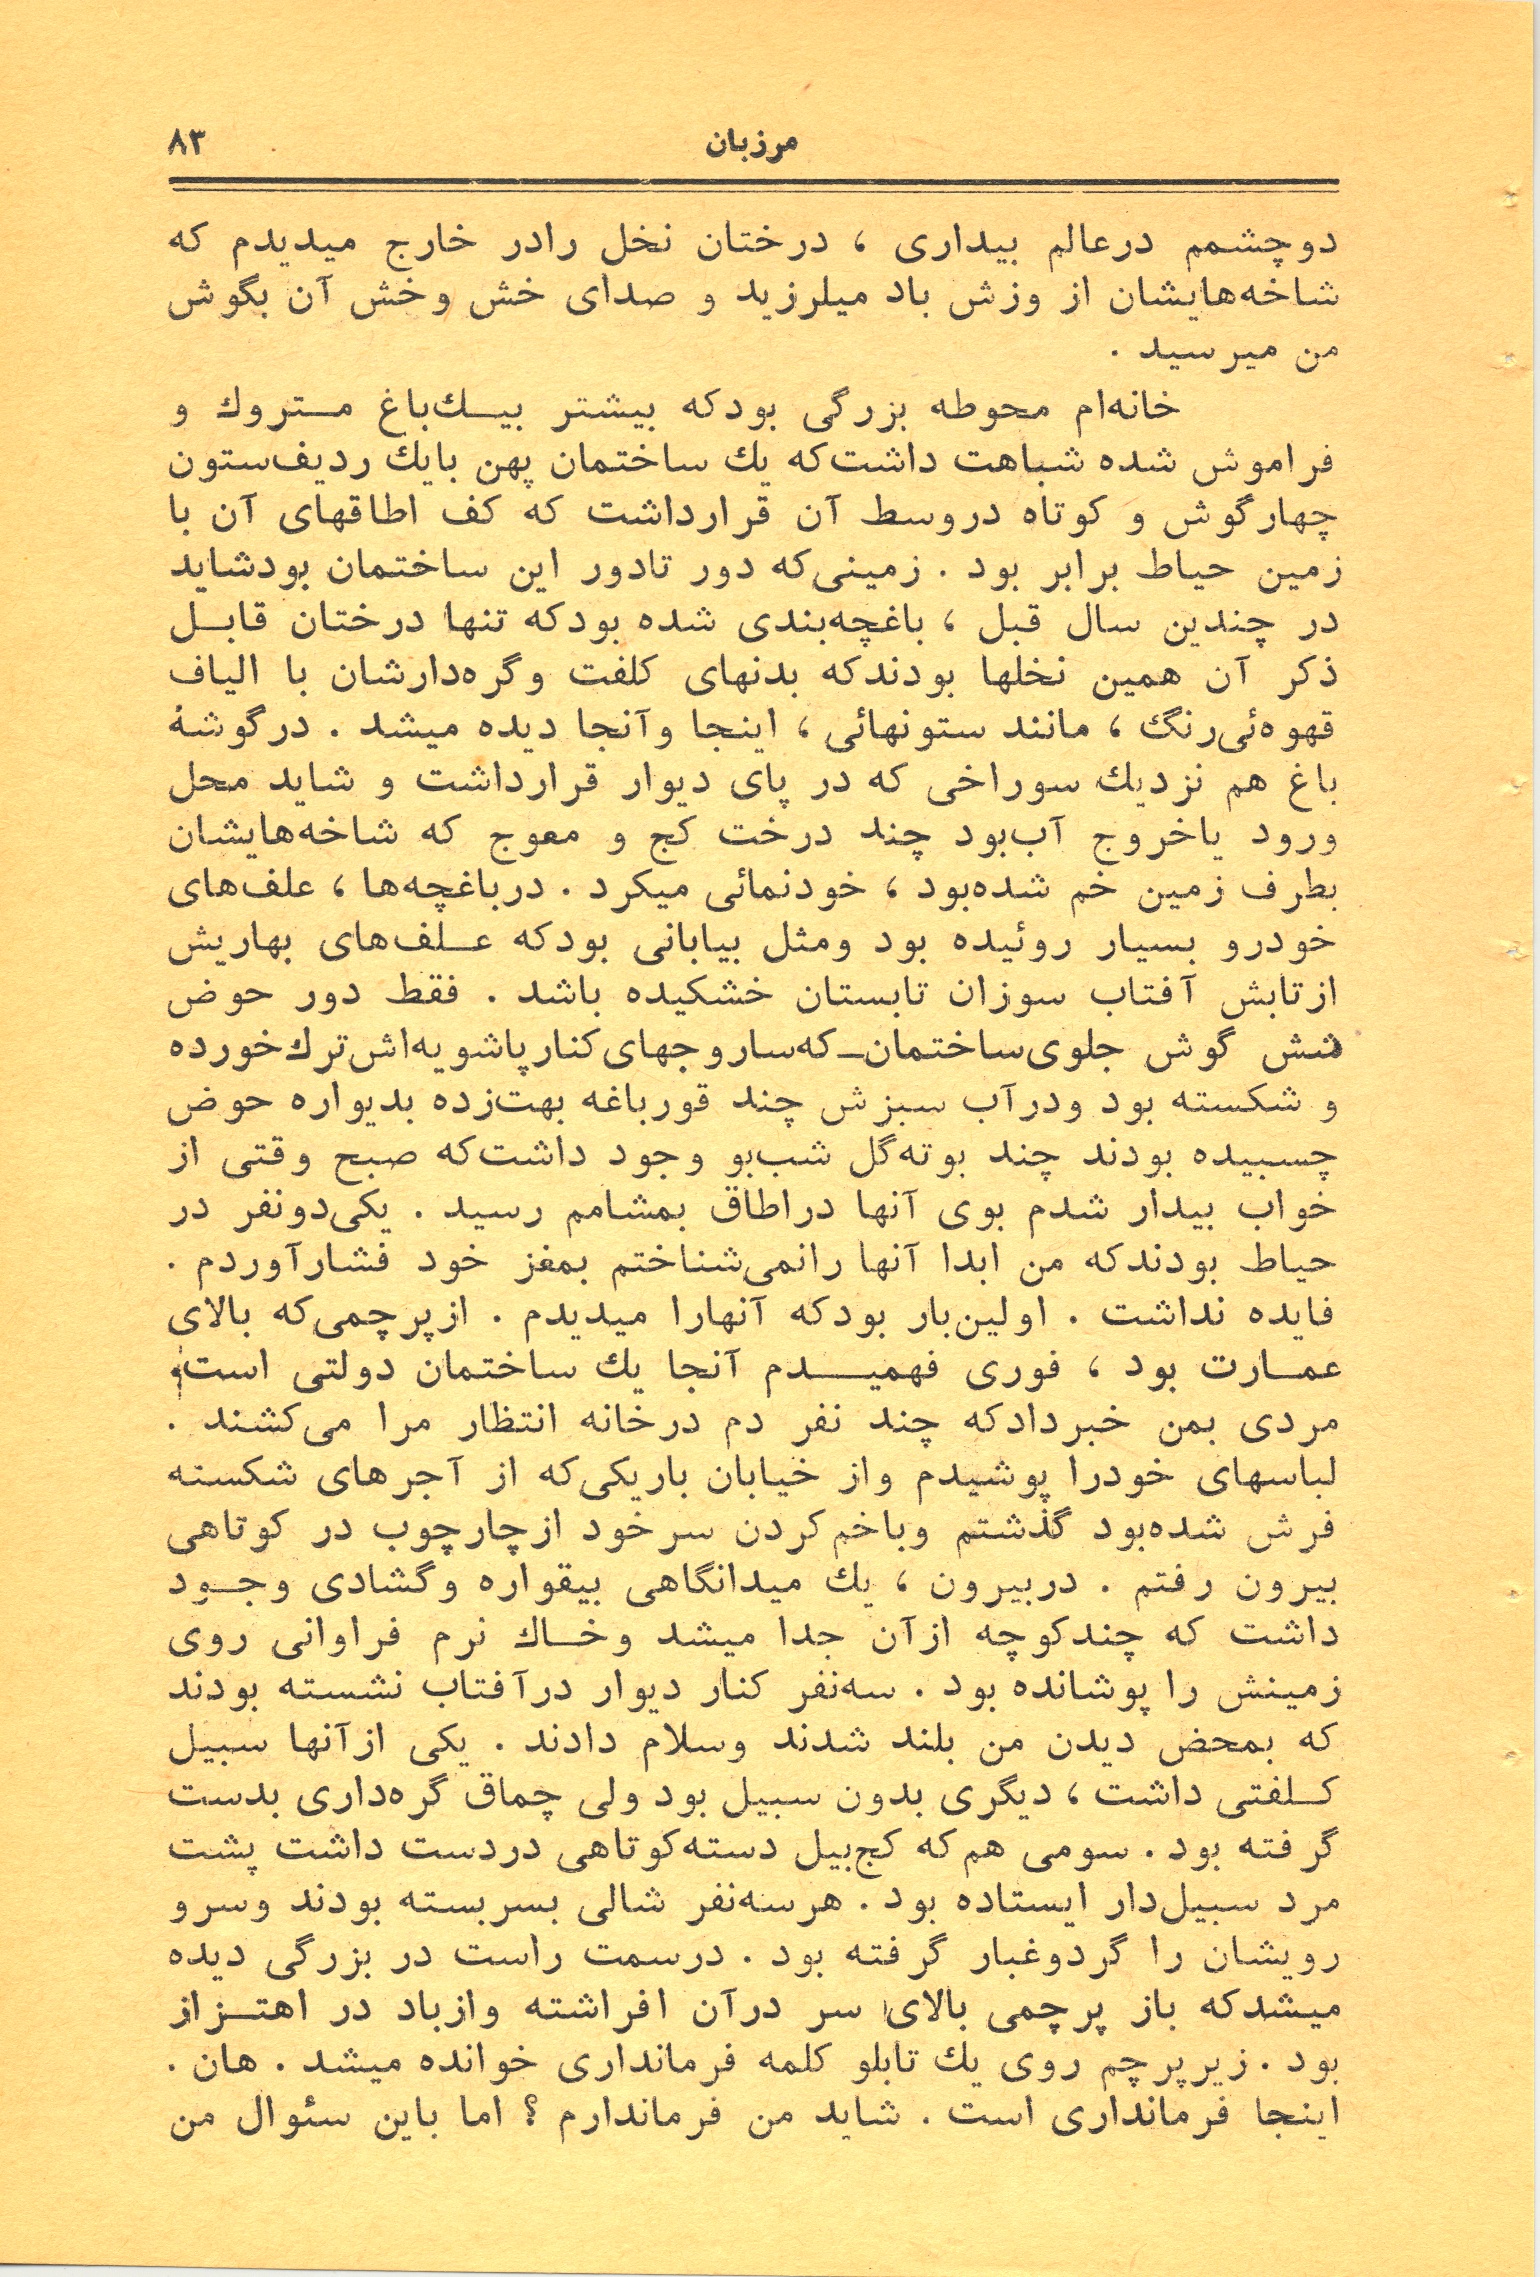 مرزبان ۸۳
دوچشمم درعالم بیداری ، درختان نخل رادر خارج میدیدم که
شاخه‌هایشان از وزش باد میلرزید و صدای خش وخش آن بگوش
من میرسید .
خانه‌ام محوطه بزرگی بودکه بیشتر بیــك‌باغ متروك و
فراموش شده شباهت داشت‌که یك ساختمان پهن بایك ردیف‌ستون
چهارگوش و کوتاه دروسط آن قرارداشت که کف اطاقهای آن با
زمین حیاط برابر بود . زمینی‌که دور تادور این ساختمان بودشاید
در چندین سال قبل ، باغچه‌بندی شده بودکه تنها درختان قابل
ذکر آن همین نخلها بودندکه بدنهای کلفت وگره‌دارشان با الیاف
قهوه‌ئی‌رنگ ، مانند ستونهائی ، اینجا وآنجا دیده میشد . درگوشهٔ
باغ هم نزدیك سوراخی که در پای دیوار قرارداشت و شاید محل
ورود یاخروج آب‌بود چند درخت کج و معوج که شاخه‌هایشان
بطرف زمین خم شده‌بود ، خودنمائی میکرد . درباغچه‌ها ، علف‌های
خودرو بسیار روئیده بود ومثل بیابانی بودکه علف‌های بهاریش
ازتابش آفتاب سوزان تابستان خشکیده باشد . فقط دور حوض
شش گوش جلوی‌ساختمان_که‌ساروجهای‌کنارپاشویه‌اش‌ترك‌خورده
و شکسته بود ودرآب سبزش چند قورباغه بهت‌زده بدیواره حوض
چسبیده بودند چند بوته‌گل شب‌بو وجود داشت‌که صبح وقتی از
خواب بیدار شدم بوی آنها دراطاق بمشامم رسید . یکی‌دونفر در
حیاط بودندکه من ابدا آنها رانمی‌شناختم بمغز خود فشارآوردم .
فایده نداشت . اولین‌بار بودکه آنهارا میدیدم . ازپرچمی‌که بالای
عمارت بود ، فوری فهمیدم آنجا یك ساختمان دولتی است،
مردی بمن خبردادکه چند نفر دم درخانه انتظار مرا می‌کشند .
لباسهای خودرا پوشیدم واز خیابان باریکی‌که از آجرهای شکسته
فرش شده‌بود گذشتم وباخم‌کردن سرخود ازچارچوب در کوتاهی
بیرون رفتم . دربیرون ، یك میدانگاهی بیقواره وگشادی وجود
داشت که چندکوچه ازآن جدا میشد وخاك نرم فراوانی روی
زمینش را پوشانده بود . سه‌نفر کنار دیوار درآفتاب نشسته بودند
که بمحض دیدن من بلند شدند وسلام دادند . یکی ازآنها سبیل
کلفتی داشت ، دیگری بدون سبیل بود ولی چماق گره‌داری بدست
گرفته بود . سومی هم‌که کج‌بیل دسته‌کوتاهی دردست داشت پشت
مرد سبیل‌دار ایستاده بود . هرسه‌نفر شالی بسربسته بودند وسرو
رویشان را گردوغبار گرفته بود . درسمت راست در بزرگی دیده
میشدکه باز پرچمی بالای سر درآن افراشته وازباد در اهتزاز
بود . زیرپرچم روی یك تابلو کلمه فرمانداری خوانده میشد . هان .
اینجا فرمانداری است . شاید من فرماندارم ؟ اما باین سئوال من